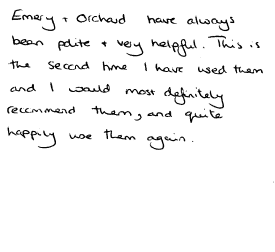 Emery + Orchard have always
been polite + very helpful. This is
the second time I have used them
and I would most definitely
recommend them, and quite
happily use them again.